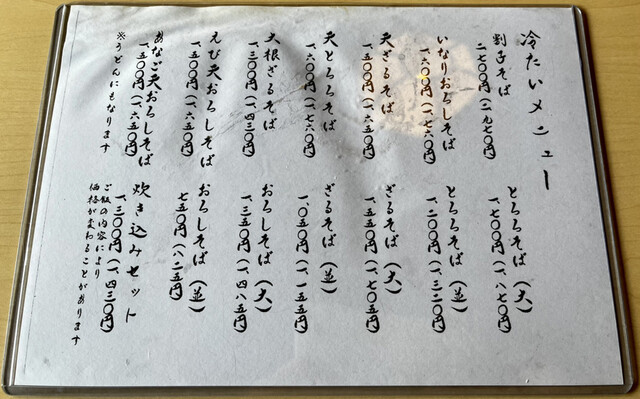 冷たいメニュー
割子そば
二、七〇〇円(二、九七〇円)
いなりおろしそば
一、六〇〇円(一、七六〇円)
天ざるそば
一、五〇〇円(一、六五〇円)
天とろろそば
一、六〇〇円(一、七六〇円)
大根ざるそば
一、三〇〇円(一、四三〇円)
えび天おろしそば
一、五〇〇円(一、六五〇円)
あなご天おろしそば
一、五〇〇円(一、六五〇円)
※うどんにもなります
とろろそば(大)
一、七〇〇円(一、八七〇円)
とろろそば(並)
一、二〇〇円(一、三二〇円)
ざるそば(大)
一、五五〇円(一、七〇五円)
ざるそば(並)
一、〇五〇円(一、一五五円)
おろしそば(大)
一、三五〇円(一、四八五円)
おろしそば(並)
七五〇円(八二五円)
炊き込みセット
一、三〇〇円(一、四三〇円)
ご飯の内容により
価格が変わることがあります